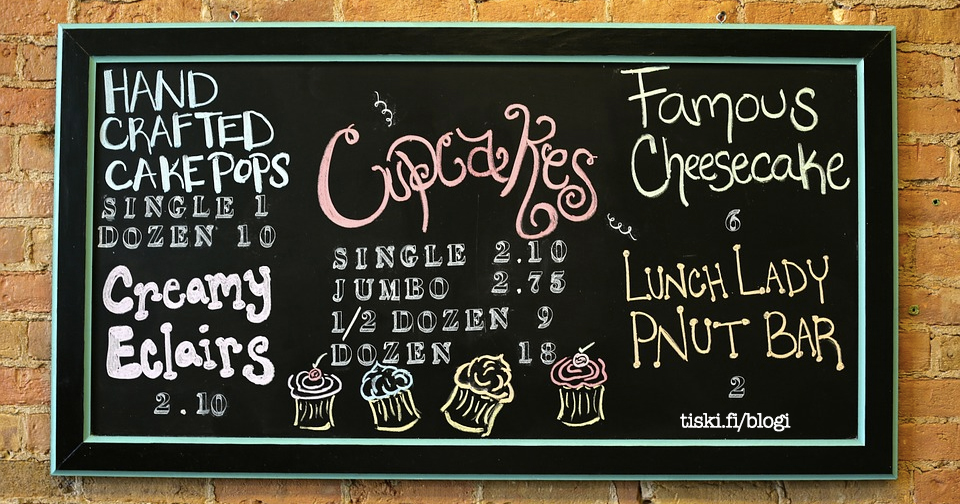 HAND
CRAFTED
CAKEPOPS
SINGLE 1
DOZEN 10
Creamy
Eclairs
2.10
Cupcakes
SINGLE 2.10
JUMBO 2.75
1/2 DOZEN 9
DOZEN 18
Famous
Cheesecake
6
LUNCH LADY
PNUT BAR
2
tiski.fi/blogi